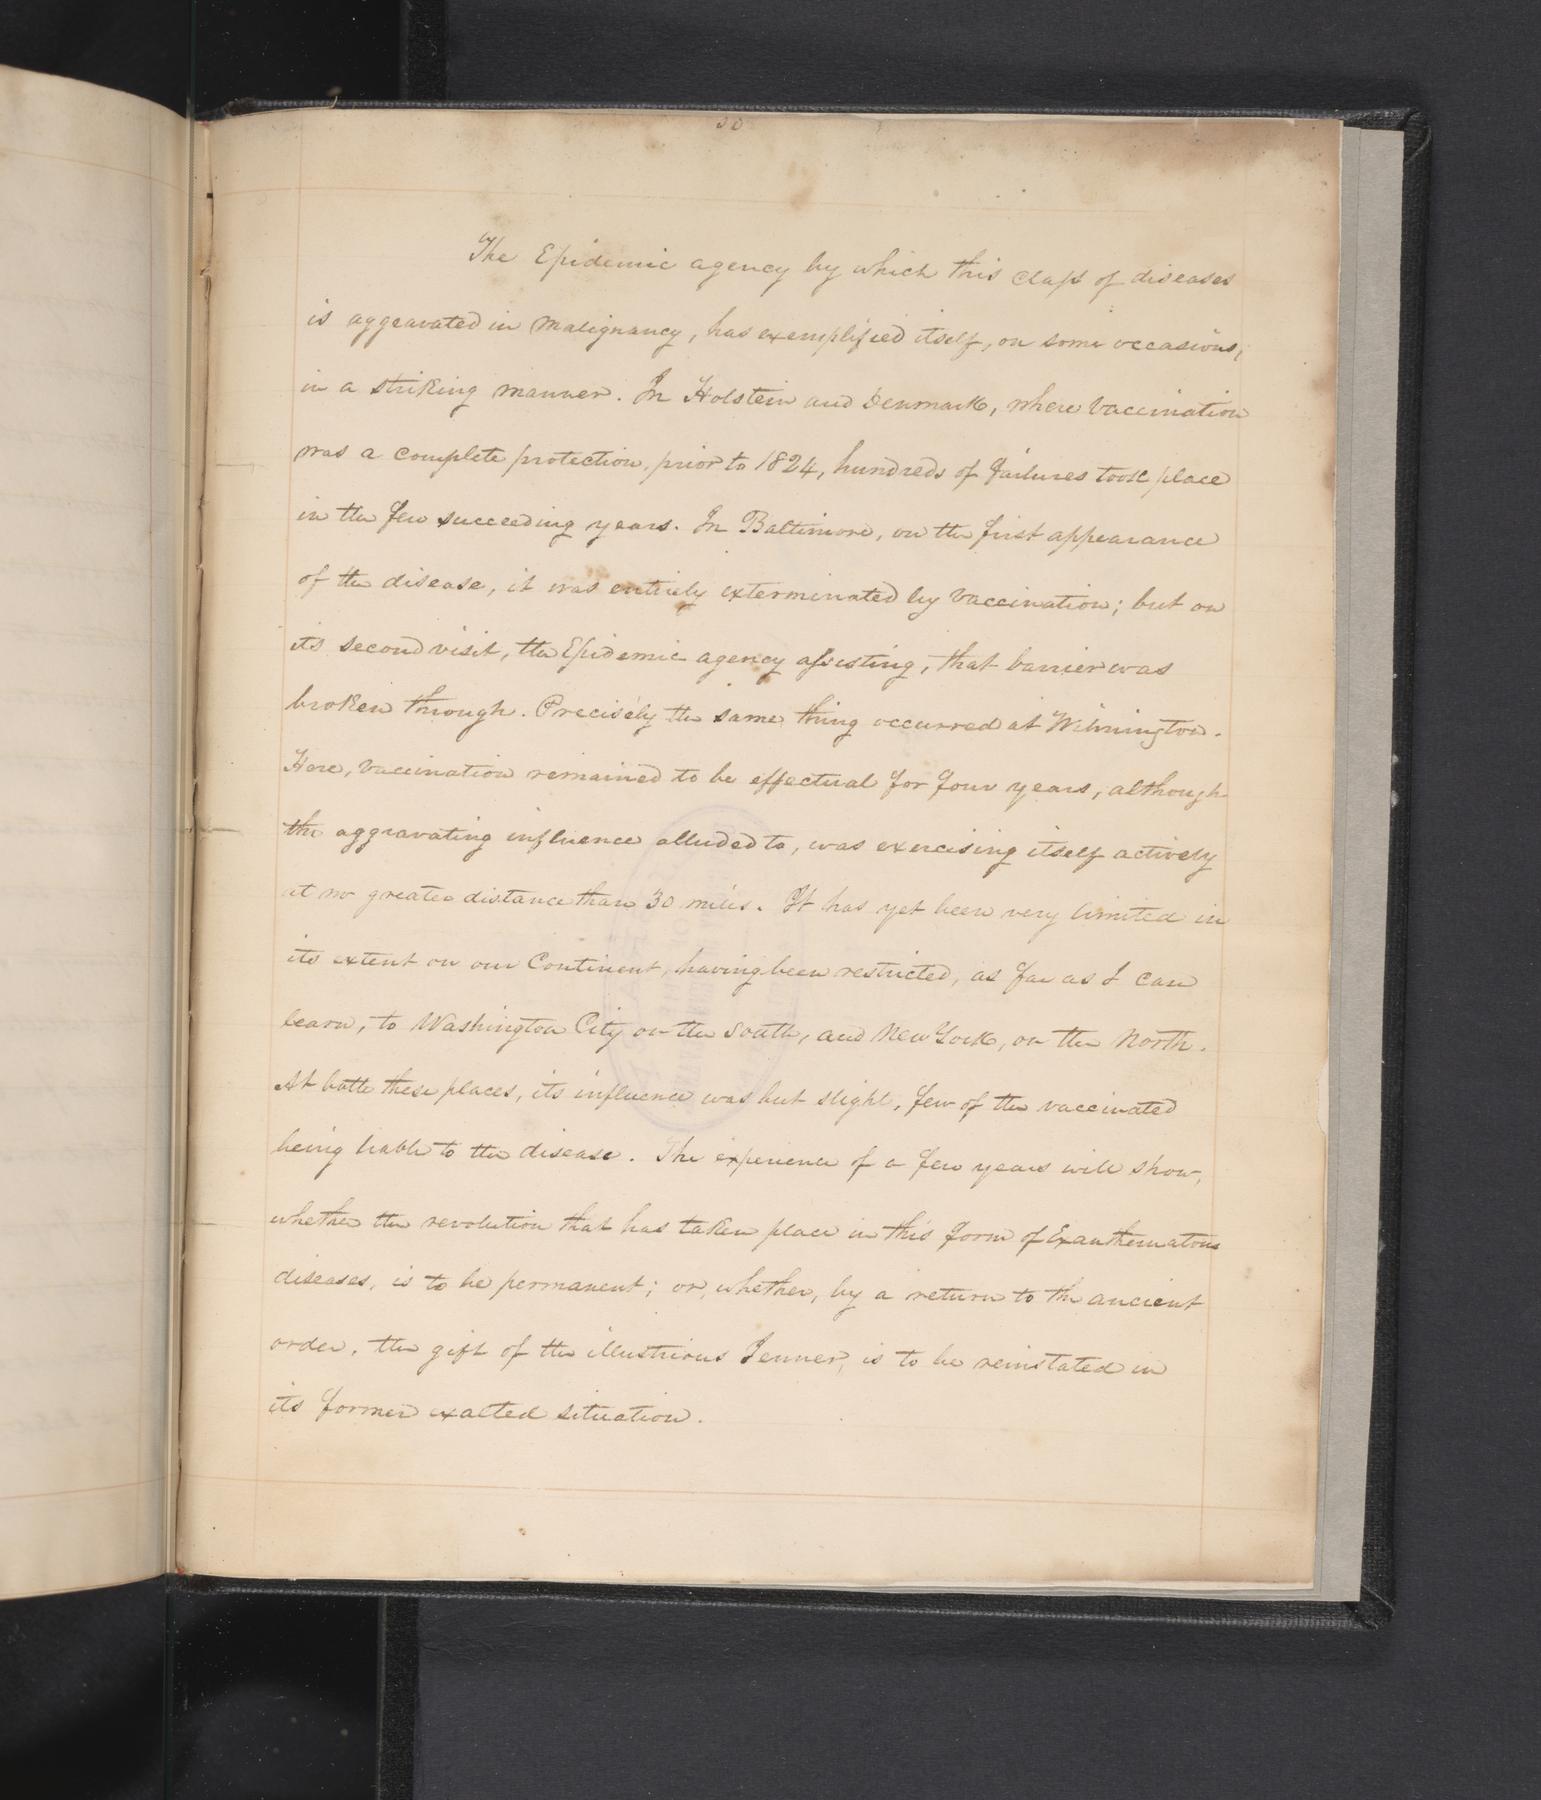 30
The Epidemic agency by which this class of diseases
is aggravated in malignancy, has exemplified itself, on some occasions,
in a striking manner. In Holstein and Denmark, where Vaccination
was a complete protection prior to 1824, hundreds of failures took place
in the few succeeding years. In Baltimore, on the first appearance
of the disease, it was entirely exterminated by Vaccination; but on
its second visit, the Epidemic agency assisting, that barrier was
broken through. Precisely the same thing occurred at Wilmington.
Here, vaccination remained to be effectual for four years, although
the aggravating influence alluded to, was exercising itself actively
at no greater distance than 30 miles. It has yet been very limited in
its extent on our Continent, having been restricted, as far as I can
learn, to Washington City on the South, and New York, on the North.
At both these places, its influence was but slight, few of the vaccinated
being liable to the disease. The experience of a few years will show,
whether the revolution that has taken place in this form of Exanthematous
diseases, is to be permanent; or, whether, by a return to the ancient
order, the gift of the illustrious Jenner, is to be reinstated in
its former exalted situation.